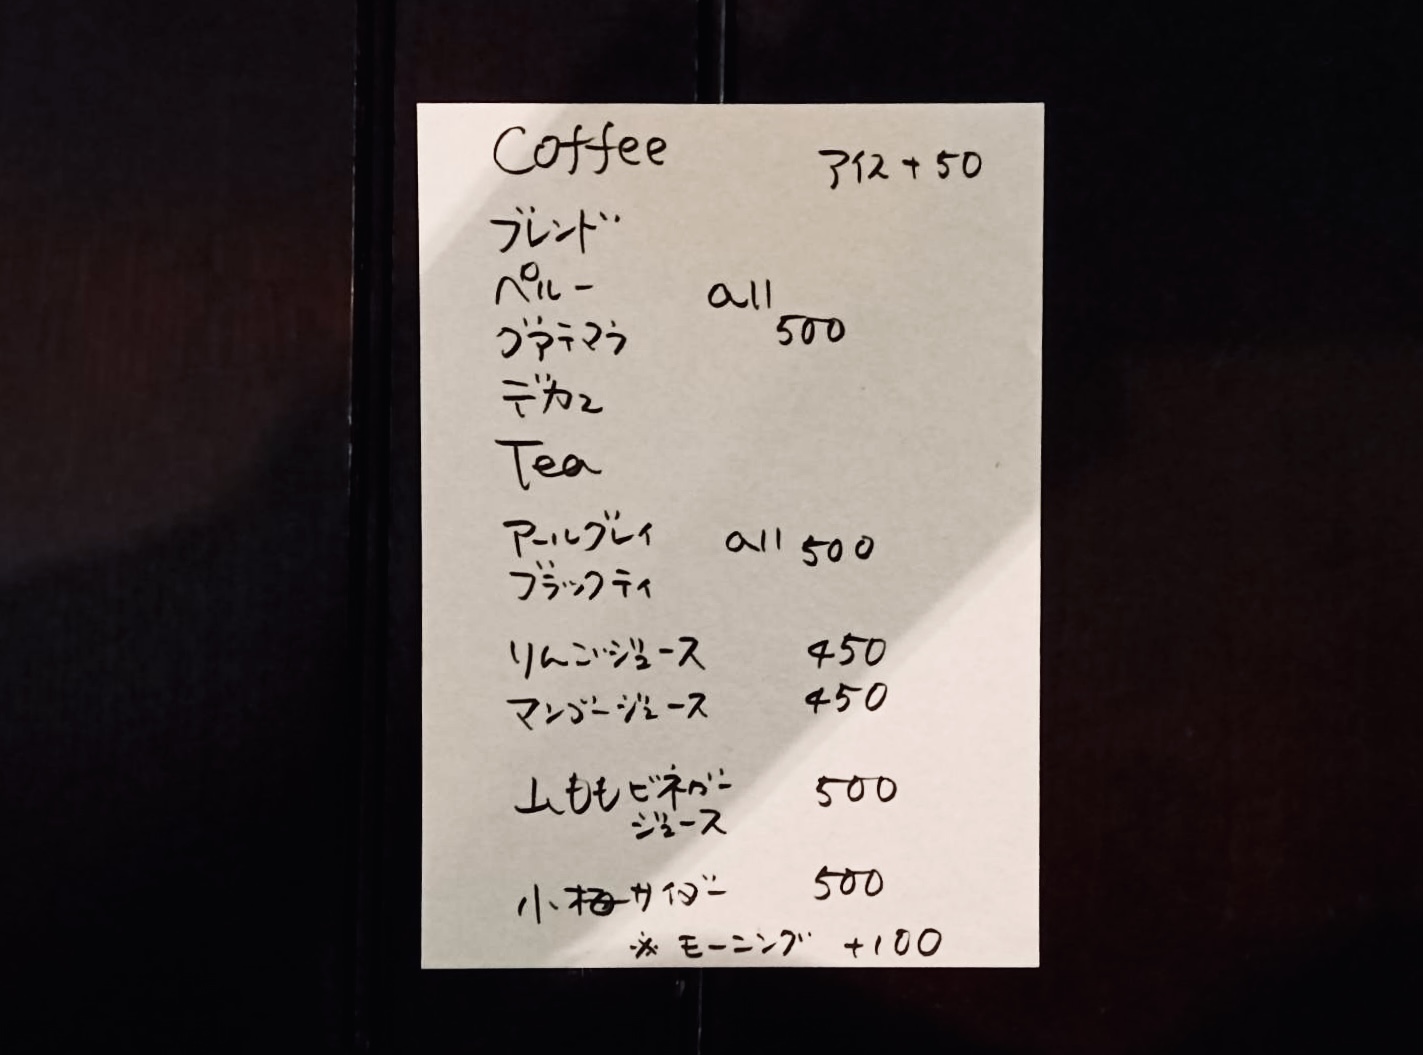 Coffee アイス+50
ブレンド
ペルー all
グァテマラ 500
デカフェ
Tea
アールグレイ all 500
ブラックティ
りんごジュース 450
マンゴージュース 450
山ももビネガー 500
ジュース
小梅サイダー 500
※モーニング +100